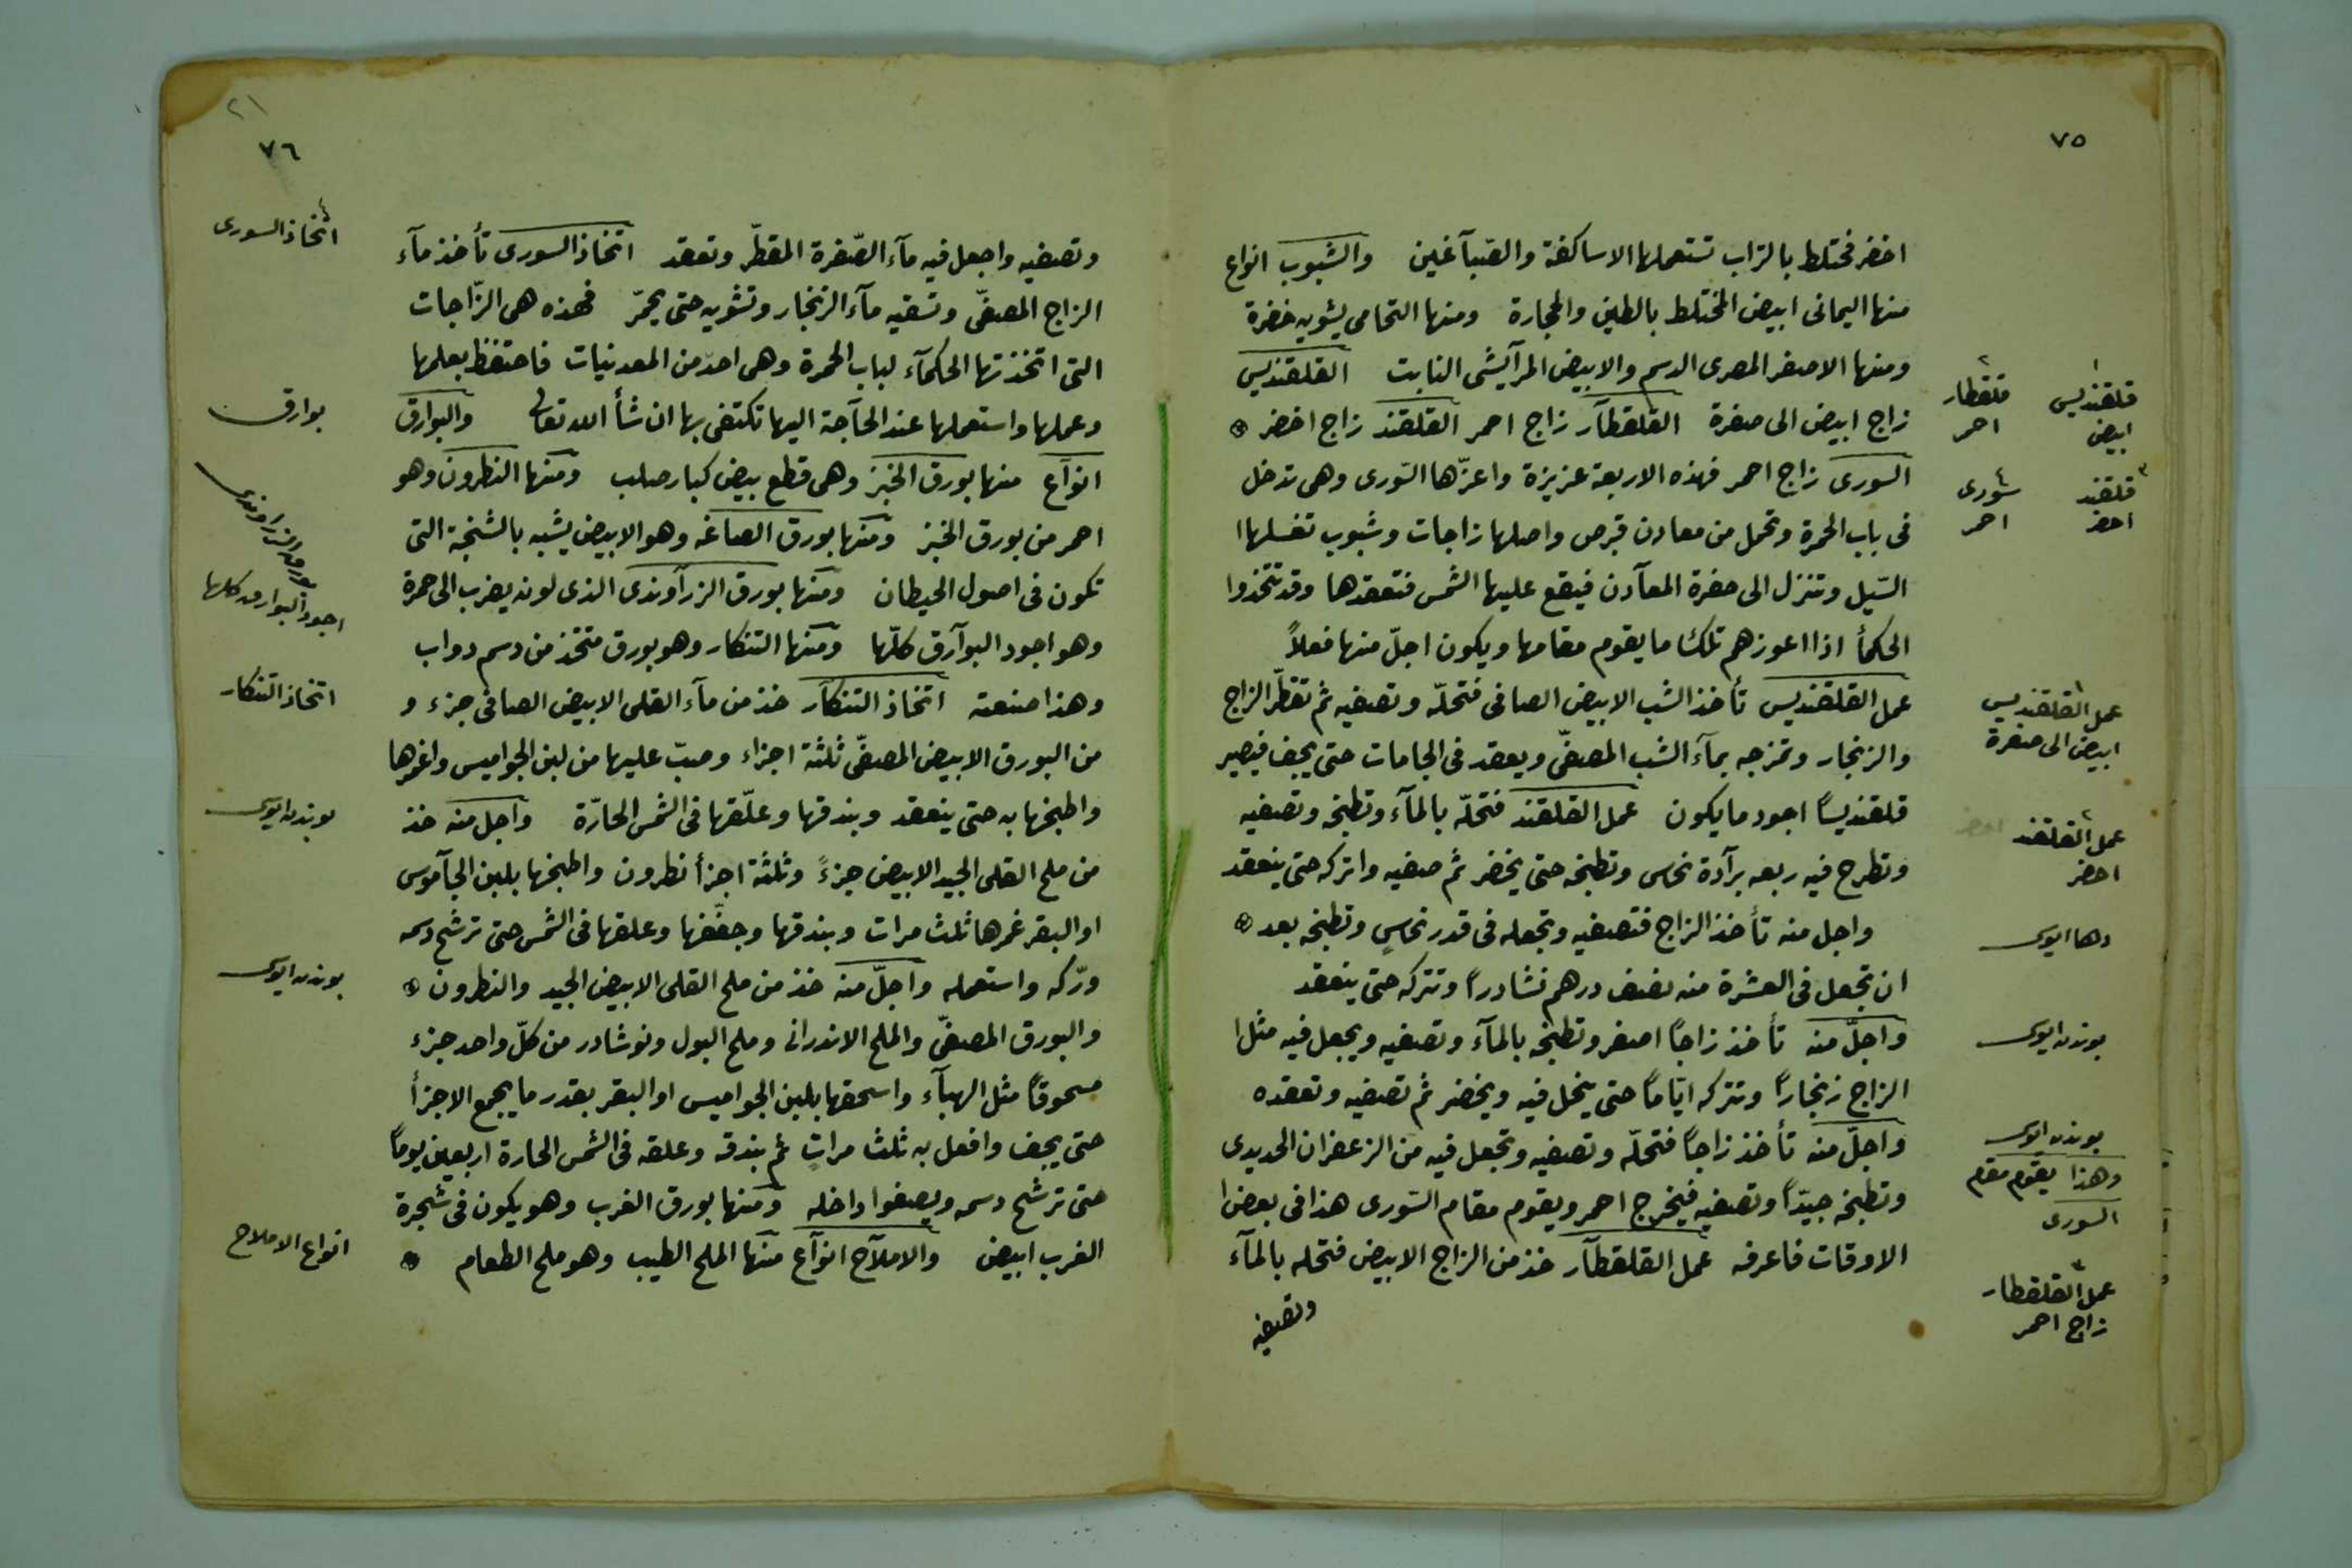 ٧٥
اخضر مختلط بالتراب تستعملها الاساكفة والصّبآغين والشبوب انواع
منها اليمانى ابيض المختلط بالطين والحجارة ومنها التحامى يشوبه خضرة
ومنها الاصفر المصرى الدسم والابيض المرآيشى النابت القلقنديس
زاج ابيض الى صفرة القلقطآر زاج احمر القلقند زاج اخضر
السورى زاج احمر فهذه الاربعة عزيزة واعزّها السّورى وهى تدخل
فى باب الحمرة وتحمل من معادن قبرص واصلها زاجات وشبوب تغسلها ا
السّيل وتنزل الى حفرة المعآدن فيقع عليها الشمس فتعقدها وقد تتخذوا
الحكمأ اذا اعوزهم تلك ما يقوم مقامها ويكون اجلّ منها فعلاً
عمل القلقنديس تأخذ الشب الابيض الصافى فتحلّه وتصفيه ثم تقطّر الزاج
والزنجار وتمزجه بمآء الشب المصفّى ويعقد فى الجامات حتى يجف فيصير
قلقنديسًا اجود ما يكون عمل القلقند فتحلّه بالمآء وتطبخه وتصفيه
وتطرح فيه ربعه برآدة نحاس وتطبخه حتى يخضر ثم صفيه واتركه حتى ينعقد
واجل منه تأخذ الزاج فتصفيه وتجعله فى قدر نحاسٍ وتطبخه بعد
ان تجعل فى العشرة منه نصف درهم نشادراً وتتركه حتى ينعقد
واجلّ منه تأخذ زاجاً اصفر وتطبخه بالمآء وتصفيه ويجعل فيه مثل ا
الزاج زنجاراً وتتركه ايّاماً حتى ينحل فيه ويخضر ثم تصفيه وتعقده
واجلّ منه تأخذ زاجاً فتحلّه وتصفيه وتجعل فيه من الزعفران الحديدى
وتطبخه جيّداً وتصفيه فيخرج احمر ويقوم مقام السّورى هذا فى بعض ا
الاوقات فاعرفه عمل القلقطآر خذ من الزاج الابيض فتحله بالمآء
وتصفيه
١ قلقنديس ابيض
٢ قلقطار احمر
٣ قلقند اخضر
٤ سورى احمر
عمل القلقنديس
ابيض الى صفرة
عمل القلقند
اخضر
دها ايوسى
بوندن ايوسى
بوندن ايوسى
وهذا يقوم مقام
السورى
عمل القلقطار
زاج احمر
٢١
٧٦
وتصفيه واجعل فيه مآء الصّفرة المقطّر وتعقد اتخاذ السورى تأخذ مآء
الزاج المصفّى وتسقيه مآء الزنجار وتشويه حتى يحمّر فهذه هى الزّاجات
التى اتخذتها الحكمآء لباب الحمرة وهى احدّ من المعدنيات فاحتفظ بعلمها
وعملها واستعملها عند الحآجة اليها تكتفى بها ان شأ الله تعالى والبوارق
انوآع منها بورق الخبز وهى قطع بيض كبار صلب ومنها النطرون وهو
احمر من بورق الخبز ومنها بورق الصاغه وهو الابيض يشبه بالشنجة التى
تكون فى اصول الحيطان ومنها بورق الزرآوندى الذى لونه يضرب الى حمرة
وهو اجود البوآرق كلّها ومنها التنكار وهو بورق متخذ من دسم دواب
وهذا صنعته اتخاذ التنكآر خذ من مآء القلى الابيض الصافى جزء و
من البورق الابيض المصفّى ثلثة اجزاء وصبّ عليها من لبن الجواميس واغمرها
واطبخها به حتى ينعقد وبندقها وعلّقها فى الشمس الحارّة واجل منه خذ
من ملح القلى الجيد الابيض جزءً وثلثة اجزأ نطرون واطبخها بلبن الجآموس
او البقر غمرها ثلث مرات وبندقها وجفّفها وعلقها فى الشمس حتى ترشح دسمه
ورّكه واستعمله واجلّ منه خذ من ملح القلى الابيض الجيد والنطرون
والبورق المصفّى والملح الاندرانى وملح البول ونوشادر من كلّ واحد جزء
مسحوقاً مثل الهبآء واسحقها بلبن الجواميس او البقر بقدر ما يجمع الاجزأ
حتى يجف وافعل به ثلث مراتٍ ثم بندقه وعلقه فى الشمس الحارة اربعين يوماً
حتى ترشح دسمه ويصفوا داخله ومنها بورق الغرب وهو يكون فى شجرة
الغرب ابيض والاملآح انوآع منها الملح الطيب وهو ملح الطعام
٤ اتخاذ السورى
بوارق
بورق الزراوندى
اجود البوارق كلها
اتخاذ التنكار
بوندن ايوسى
بوندن ايوسى
انواع الاملاح